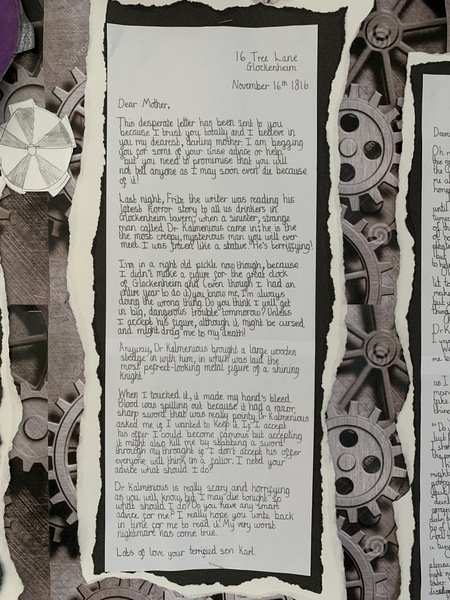 16 Tree Lane
Glockenheim
November 16th 1816
Dear Mother,
This desperate letter has been sent to you
because I trust you totally and I believe in
you my dearest, darling mother. I am begging
you for some of your wise advice or help,
but you need to promimise that you will
not tell anyone as I may soon even die because
of it!
Last night, Fritz the writer was reading his
latest Horror story to all us drinkers in
Glockenheim tavern, when a sinister, strange
man called Dr Kalmenious came in; he is the
the most creepy, mysterious man you will ever
meet. I was frozen like a statue. He's terrifying!
I'm in a right old pickle now though, because
I didn't make a figure for the great clock
of Glockenheim and (even though I had an
entire year to do it) you know me, I'm always
doing the wrong thing. Do you think I will get
in big, dangerous trouble tommorow? Unless
I accept his figure, although it might be cursed
and might drag me to my death!
Anyway, Dr Kalmenious brought a large wooden
sledge in with him, in which was laid the
most perfect-looking metal figure of a shining
knight.
When I touched it, it made my hand bleed.
Blood was spilling out because it had a razor
sharp sword that was really pointy. Dr Kalmenious
asked me if I wanted to keep it. If I accept
his offer I could become famous but accepting
it might also kill me by stabbing a sword
through my throught. If I don't accept his offer
everyone will think im a failior. I need your
advice what should I do?
Dr Kalmenious is really scary and horrifying
as you will know, but I may die tonight so
what should I do? Do you have any smart
advice for me? I really hope you write back
in time for me to read it. My very worst
nightmare has come true.
Lots of love your terrified son Karl.